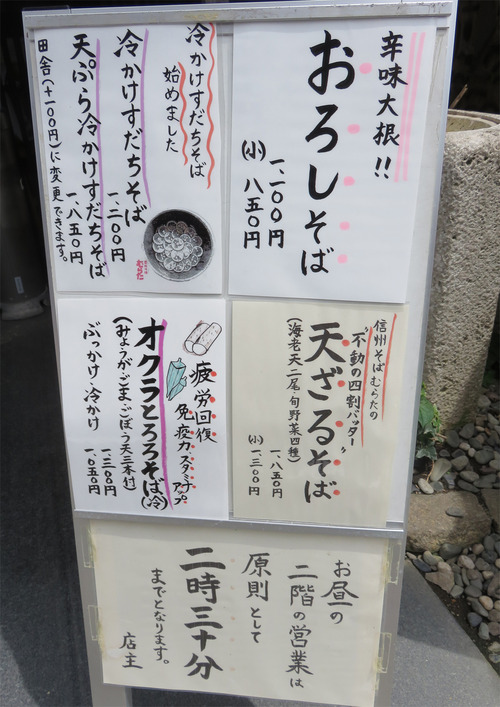 辛味大根!!
おろしそば
一、一〇〇円
(小) 八五〇円
冷かけすだちそば
始めました
冷かけすだちそば
一、二〇〇円
天ぷら冷かけすだちそば
一、八五〇円
田舎(+一〇〇円)に変更できます。
むらた
信州そばむらたの
"不動の四割バッター"
天ざるそば
(海老天二尾・旬野菜四種)
一、八五〇円
(小) 一、三〇〇円
疲労回復
免疫力・スタミナアップ
オクラとろろそば(冷)
(みょうが・ごま・ごぼう天三本付)
一、三〇〇円
ぶっかけ・冷かけ
一、〇五〇円
お昼の
二階の営業は
原則として
二時三十分
までとなります。
店主